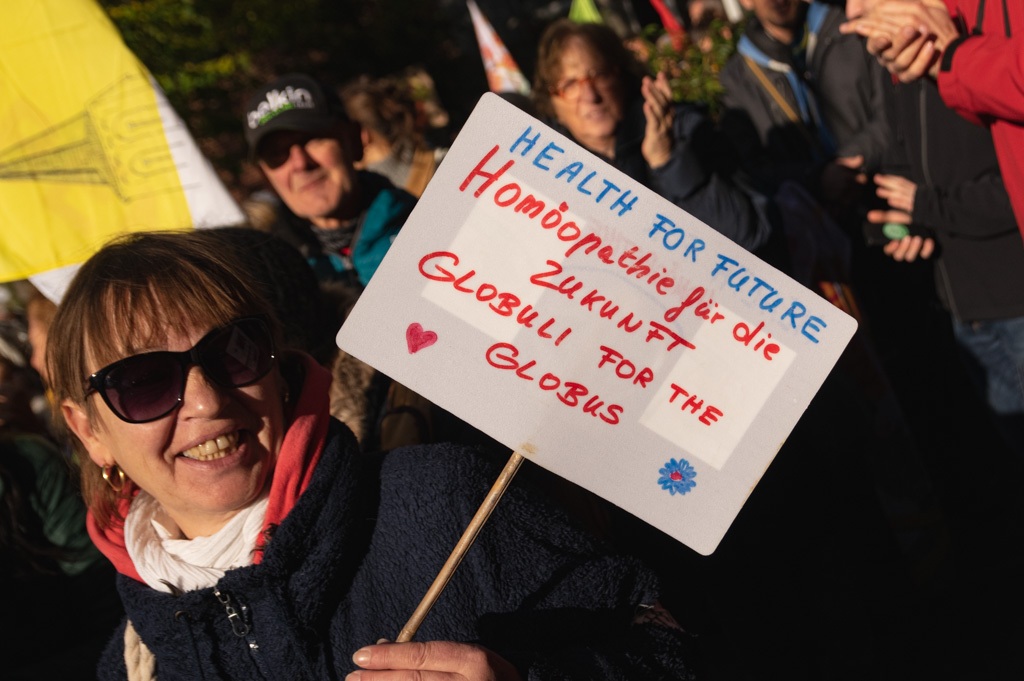 belkin
HEALTH FOR FUTURE
Homöopathie für die
ZUKUNFT
GLOBULI FOR THE
GLOBUS